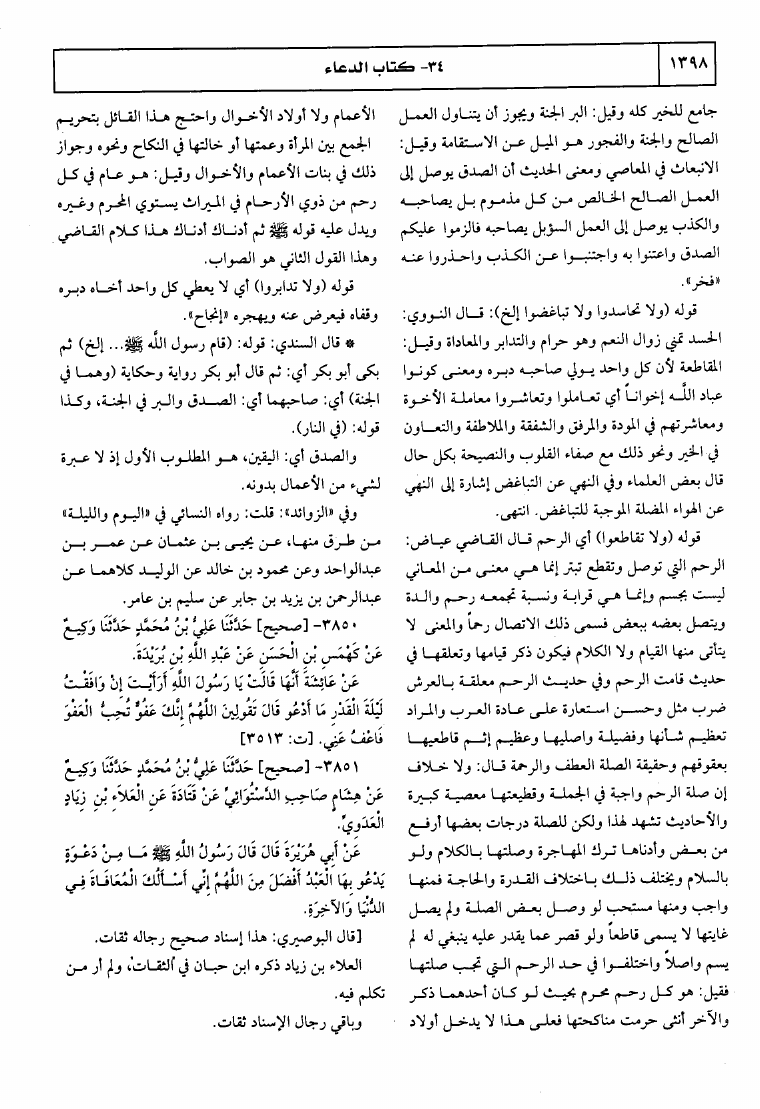 ١٣٩٨
٣٤- كتاب الدعاء
جامع للخير كله وقيل: البر الجنة ويجوز أن يتناول العمل
الصالح والجنة والفجور هو الميل عن الاستقامة وقيل:
الانبعاث في المعاصي ومعنى الحديث أن الصدق يوصل إلى
العمل الصالح الخالص من كل مذموم بل يصاحبه
والكذب يوصل إلى العمل السؤبل يصاحبه فالزموا عليكم
الصدق واعتنوا به واجتنبوا عن الكذب واحذروا عنه
«فخر».
قوله (ولا تحاسدوا ولا تباغضوا إلخ): قال النووي:
الحسد تمني زوال النعم وهو حرام والتدابر والمعاداة وقيل:
المقاطعة لأن كل واحد يولي صاحبه دبره ومعنى كونوا
عباد اللَّه إخواناً أي تعاملوا وتعاشروا معاملة الأخوة
ومعاشرتهم في المودة والمرفق والشفقة والملاطفة والتعاون
في الخير ونحو ذلك مع صفاء القلوب والنصيحة بكل حال
قال بعض العلماء وفي النهي عن التباغض إشارة إلى النهي
عن الهواء المضلة الموجبة للتباغض. انتهى.
قوله (ولا تقاطعوا) أي الرحم قال القاضي عياض:
الرحم التي توصل وتقطع تبتر إنما هي معنى من المعاني
ليست بجسم وإنما هي قرابة ونسبة تجمعه رحم والدة
ويتصل بعضه ببعض فسمى ذلك الاتصال رحماً والمعنى لا
يتأتى منها القيام ولا الكلام فيكون ذكر قيامها وتعلقها في
حديث قامت الرحم وفي حديث الرحم معلقة بالعرش
ضرب مثل وحسن استعارة على عادة العرب والمراد
تعظيم شأنها وفضيلة واصليها وعظيم إثم قاطعيها
بعقوقهم وحقيقة الصلة العطف والرحمة قال: ولا خلاف
إن صلة الرحم واجبة في الجملة وقطيعتها معصية كبيرة
والأحاديث تشهد لهذا ولكن للصلة درجات بعضها أرفع
من بعض وأدناها ترك المهاجرة وصلتها بالكلام ولو
بالسلام ويختلف ذلك باختلاف القدرة والحاجة فمنها
واجب ومنها مستحب لو وصل بعض الصلة ولم يصل
غايتها لا يسمى قاطعاً ولو قصر عما يقدر عليه ينبغي له لم
يسم واصلاً واختلفوا في حد الرحم التي تجب صلتها
فقيل: هو كل رحم محرم بحيث لو كان أحدهما ذكر
والآخر أنثى حرمت مناكحتها فعلى هذا لا يدخل أولاد
الأعمام ولا أولاد الأخوال واحتج هذا القائل بتحريم
الجمع بين المرأة وعمتها أو خالتها في النكاح ونحوه وجواز
ذلك في بنات الأعمام والأخوال وقيل: هو عام في كل
رحم من ذوي الأرحام في الميراث يستوي المحرم وغيره
ويدل عليه قوله ﷺ ثم أدناك أدناك هذا كلام القاضي
وهذا القول الثاني هو الصواب.
قوله (ولا تدابروا) أي لا يعطي كل واحد أخاه دبره
وقفاه فيعرض عنه ويهجره «إنجاح».
* قال السندي: قوله: (قام رسول اللَّه ﷺ... إلخ) ثم
بكى أبو بكر أي: ثم قال أبو بكر رواية وحكاية (وهما في
الجنة) أي: صاحبهما أي: الصدق والبر في الجنة، وكذا
قوله: (في النار).
والصدق أي: اليقين، هو المطلوب الأول إذ لا عبرة
لشيء من الأعمال بدونه.
وفي «الزوائد»: قلت: رواه النسائي في «اليوم والليلة»
من طرق منها، عن يحيى بن عثمان عن عمر بن
عبدالواحد وعن محمود بن خالد عن الوليد كلاهما عن
عبدالرحمن بن يزيد بن جابر عن سليم بن عامر.
٣٨٥٠- [صحيح] حَدَّثَنَا عَلِيُّ بْنُ مُحَمَّدٍ حَدَّثَنَا وَكِيعٌ
عَنْ كَهْمَسِ بْنِ الْحَسَنِ عَنْ عَبْدِ اللَّهِ بْنِ بُرَيْدَةَ.
عَنْ عَائِشَةَ أَنَّهَا قَالَتْ يَا رَسُولَ اللَّهِ أَرَأَيْتَ إِنْ وَافَقْتُ
لَيْلَةَ الْقَدْرِ مَا أَدْعُو قَالَ تَقُولِينَ اللَّهُمَّ إِنَّكَ عَفُوٌّ تُحِبُّ الْعَفْوَ
فَاعْفُ عَنِّي. [ت: ٣٥١٣]
٣٨٥١- [صحيح] حَدَّثَنَا عَلِيُّ بْنُ مُحَمَّدٍ حَدَّثَنَا وَكِيعٌ
عَنْ هِشَامٍ صَاحِبِ الدَّسْتُوَائِيِّ عَنْ قَتَادَةَ عَنِ الْعَلَاءِ بْنِ زِيَادٍ
الْعَدَوِيِّ.
عَنْ أَبِي هُرَيْرَةَ قَالَ قَالَ رَسُولُ اللَّهِ ﷺ مَا مِنْ دَعْوَةٍ
يَدْعُو بِهَا الْعَبْدُ أَفْضَلَ مِنَ اللَّهُمَّ إِنِّي أَسْأَلُكَ الْمُعَافَاةَ فِي
الدُّنْيَا وَالْآخِرَةِ.
[قال البوصيري: هذا إسناد صحيح رجاله ثقات.
العلاء بن زياد ذكره ابن حبان في "الثقات"، ولم أر من
تكلم فيه.
وباقي رجال الإسناد ثقات.